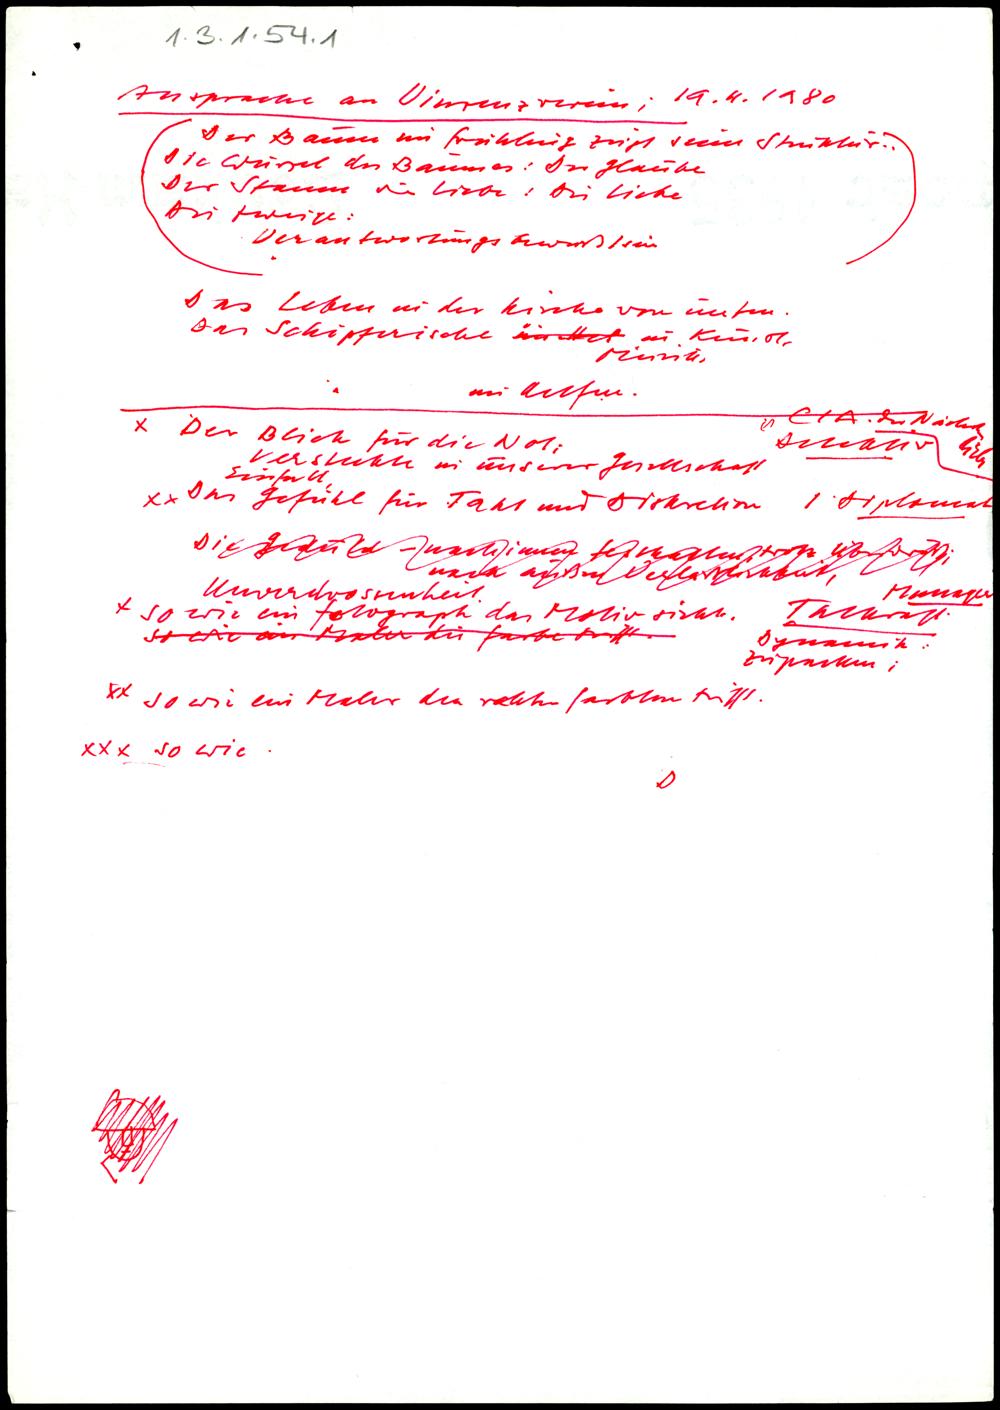 1.3.1.54.1
Ansprache an Vinzenzverein; 19.4.1980
Der Baum im Frühling zeigt seine Struktur:
Die Wurzel des Baumes: Der Glaube
Der Stamm die Liebe: Die Liebe
Die Zweige:
Verantwortungsbewußtsein
Das Leben in der Kirche von unten.
Das Schöpferische in Kunst,
Musik,
im Helfen.
x Der Blick für die Not; CIA der Nächsten
liebe
Versteckte in unserer Gesellschaft Detektiv
Einfall
xx Das Gefühl für Takt und Diskretion 1 Diplomat
Die Geduld
nach außen Verletzlichkeit,
Unverdrossenheit Manager
x so wie ein Fotograph das Motiv sieht. Tatkraft
so wie ein Maler die Farbe trifft. Dynamik:
zupacken;
xx so wie ein Maler den rechten Farbton trifft.
xxx so wie
D